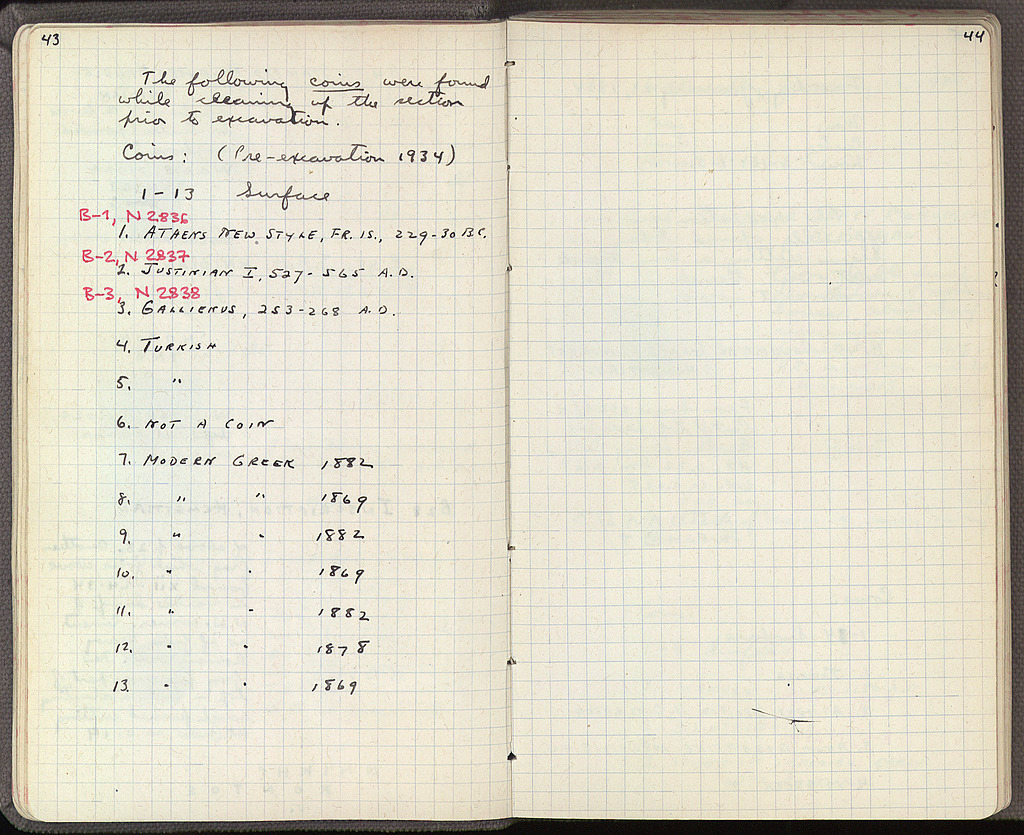 43
The following coins were found
while cleaning up the section
prior to excavation.
Coins: (Pre-excavation 1934)
1-13 Surface
B-1, N 2836
1. ATHENS NEW STYLE, FR. IS., 229-30 B.C.
B-2, N 2837
2. JUSTINIAN I, 527-565 A.D.
B-3, N 2838
3. GALLIENUS, 253-268 A.D.
4. TURKISH
5. "
6. NOT A COIN
7. MODERN GREEK 1882
8. " " 1869
9. " " 1882
10. " " 1869
11. " " 1882
12. " " 1878
13. " " 1869
44